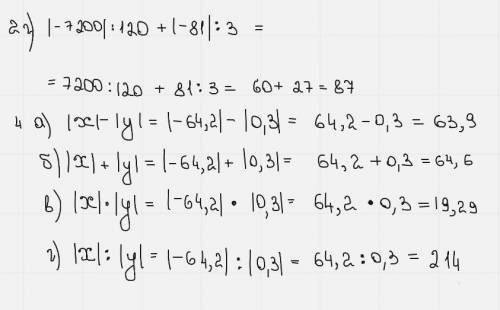 2г) |-7200|:120 + |-81|:3 =
= 7200:120 + 81:3 = 60+ 27 = 87
4 а) |x|-|y| = |-64,2| - |0,3| = 64,2 - 0,3 = 63,9
б) |x|+|y| = |-64,2| + |0,3| = 64,2 + 0,3 = 64,5
в) |x|•|y| = |-64,2| • |0,3| = 64,2 • 0,3 = 19,29
г) |x|:|y| = |-64,2| : |0,3| = 64,2 : 0,3 = 214